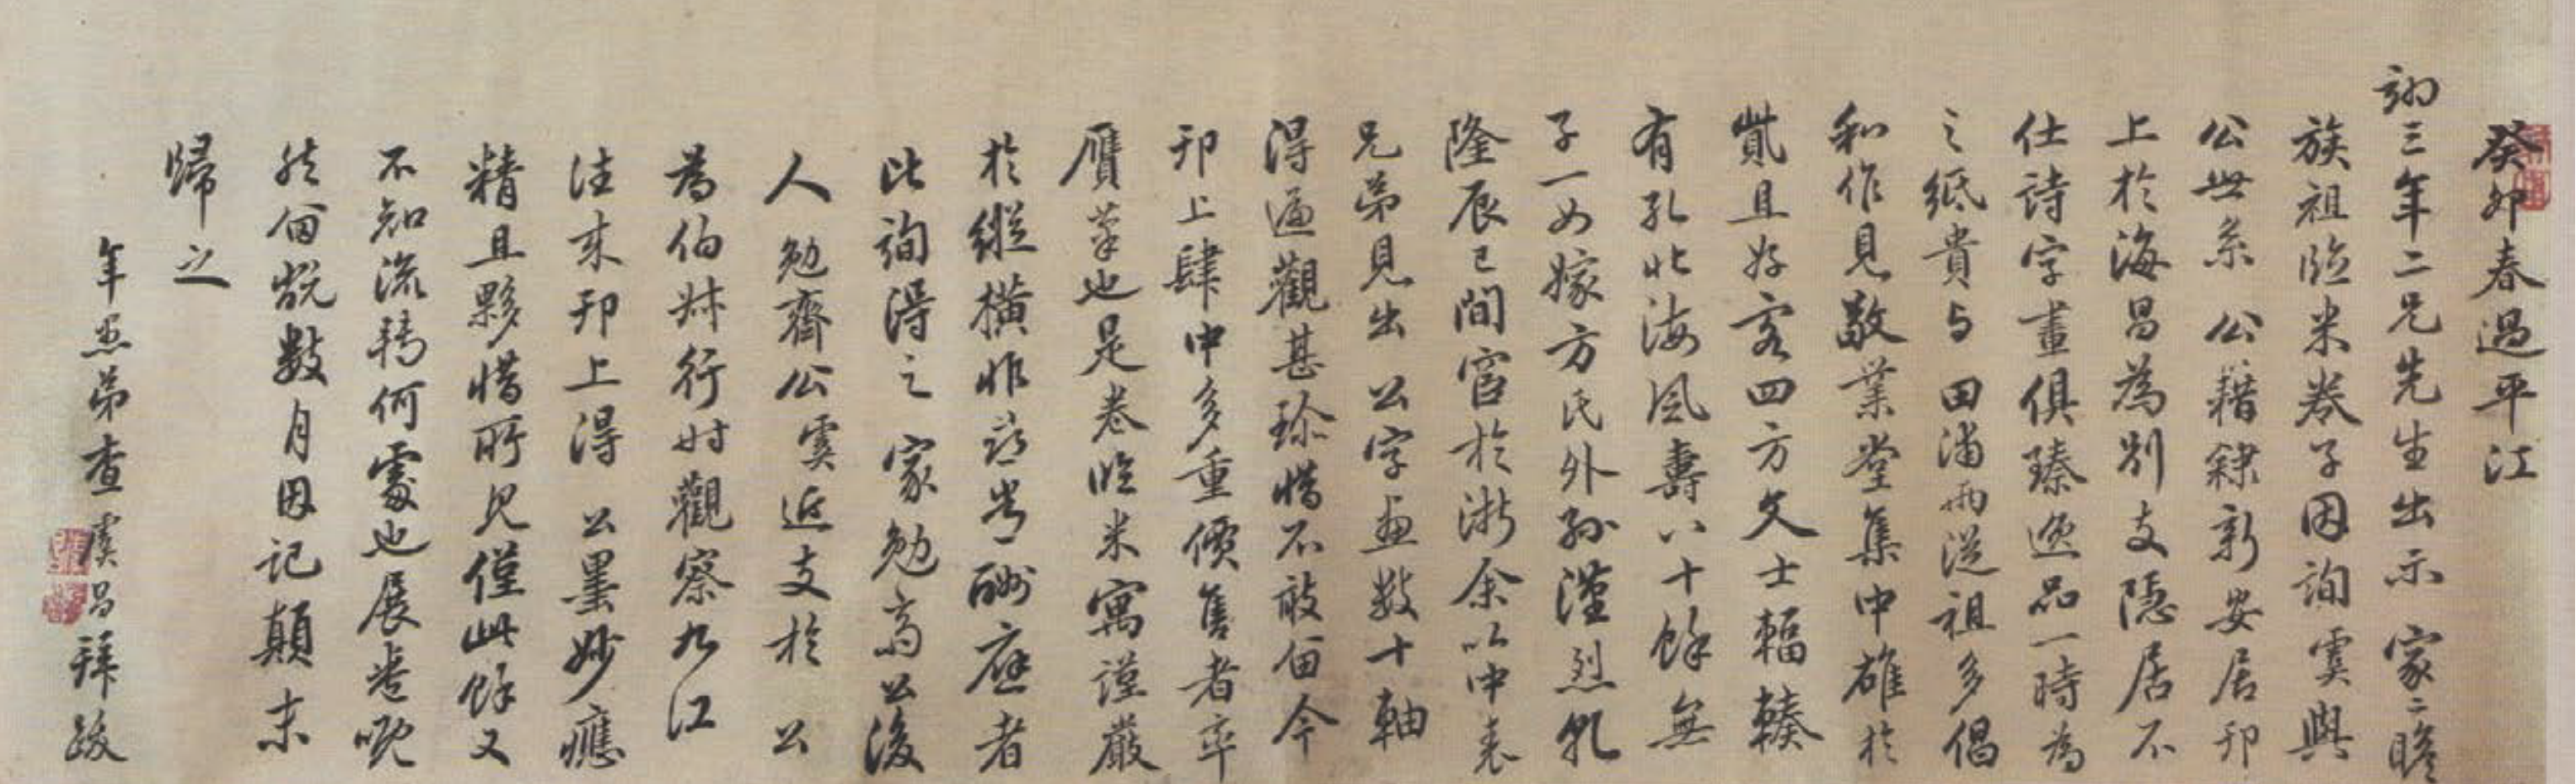 癸卯春過平江
訒三年二兄先生出示家二瞻
族祖臨米卷子因詢虞與
公世系公籍隸新安居邗
上於海昌為別支隱居不
仕詩字畫俱臻逸品一時為
之紙貴與田浦兩從祖多倡
和作見敬業堂集中雄於
貲且好客四方文士輻輳
有孔北海風壽八十餘無
子一女嫁方氏外孫瀣烈乾
隆辰巳間宦於浙余以中表
兄弟見出公字畫數十軸
得遍觀甚珍惜不敢留今
邗上肆中多重價售者率
贋筆也是卷臨米寓謹嚴
於縱橫非尋常酬應者
比詢得之家勉齋公後
人勉齋公虞近支於公
為伯叔行時觀察九江
往來邗上得公墨妙應
精且夥惜所見僅此餘又
不知流轉何處也展卷嘅
然留翫數月因記顛末
歸之
年愚弟查虞昌拜跋